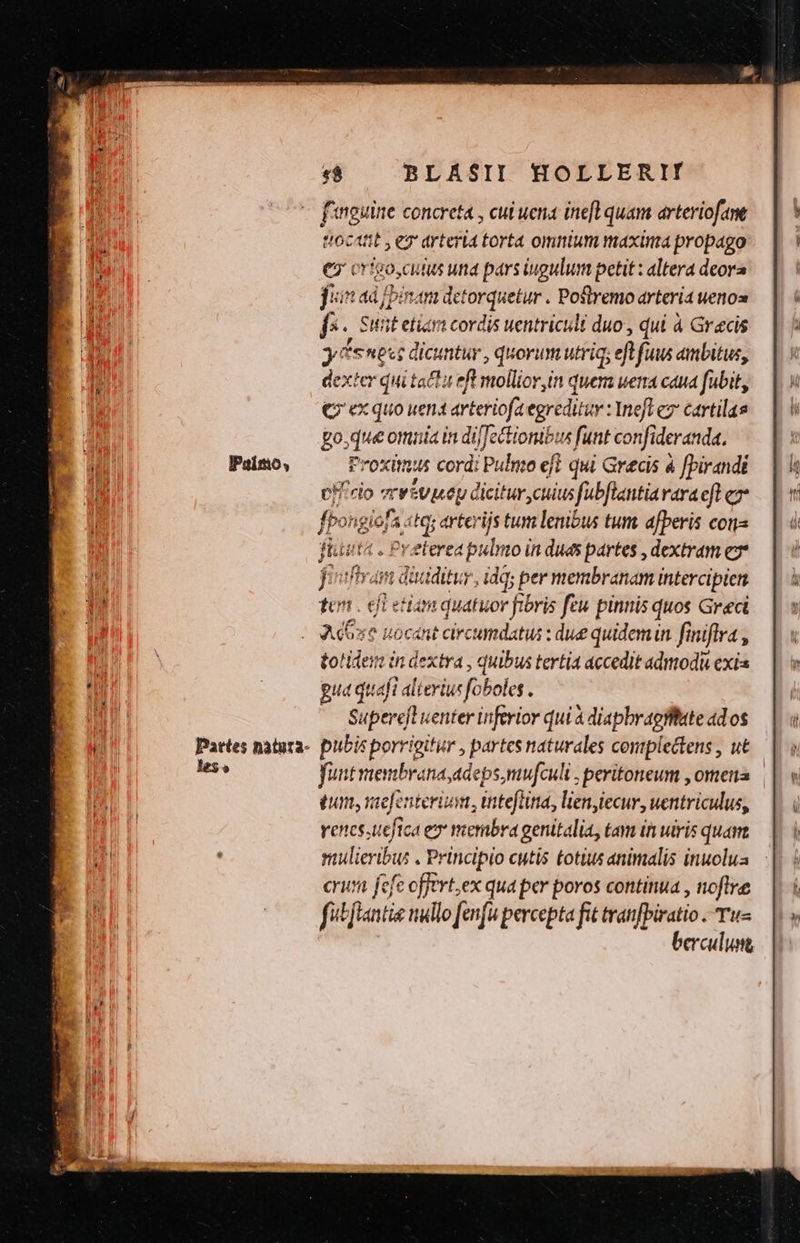 58 BLASII HOLLERII
sanguine concreta , cui uena inest quam arteriosam
uocant , & arteria torta omnium maxima propago
& origo,cuius una pars iugulum petit : altera deor=
sum ad spinam detorquetur . Postremo arteria ueno=
sa . Sunt etiam cordis uentriculi duo , qui à Græcis
dicuntur , quorum utriq; est suus ambitus,
dexter qui tactu est mollior,in quem uena caua subit,
& ex quo uena arteriosa egreditur : Inest & cartila=
go,quæ omnia in dissectionibus sunt consideranda.
Pulmo,
Proximus cordi Pulmo est qui Græcis à spirandi
officio πνεύμωμ dicitur,cuius substantia rara est &
spongiosa atq; arterijs tum lenibus tum asperis con=
stituta . Præterea pulmo in duas partes , dextram &
sinistram diuiditur , idq; per membranam intercipien
tem . est etiam quatuor fibris seu pinnis quos Græci
λόβους uocant circumdatus : duæ quidem in sinistra ,
totidem in dextra , quibus tertia accedit admodū exi=
gua quasi alterius soboles .
Superest uenter inferior qui à diaphragmate ad os
Partes natura-
les.
pubis porrigitur , partes naturales complectens , ut
sunt membrana,adeps,musculi , peritoneum , omen=
tum, mesenterium, intestina, lien,iecur, uentriculus,
renes,uesica & membra genitalia, tam in uiris quam
mulieribus . Principio cutis totius animalis inuolu=
crum sese offert,ex qua per poros continua , nostræ
substantiæ nullo sensu percepta fit transpiratio . Tu=
berculum